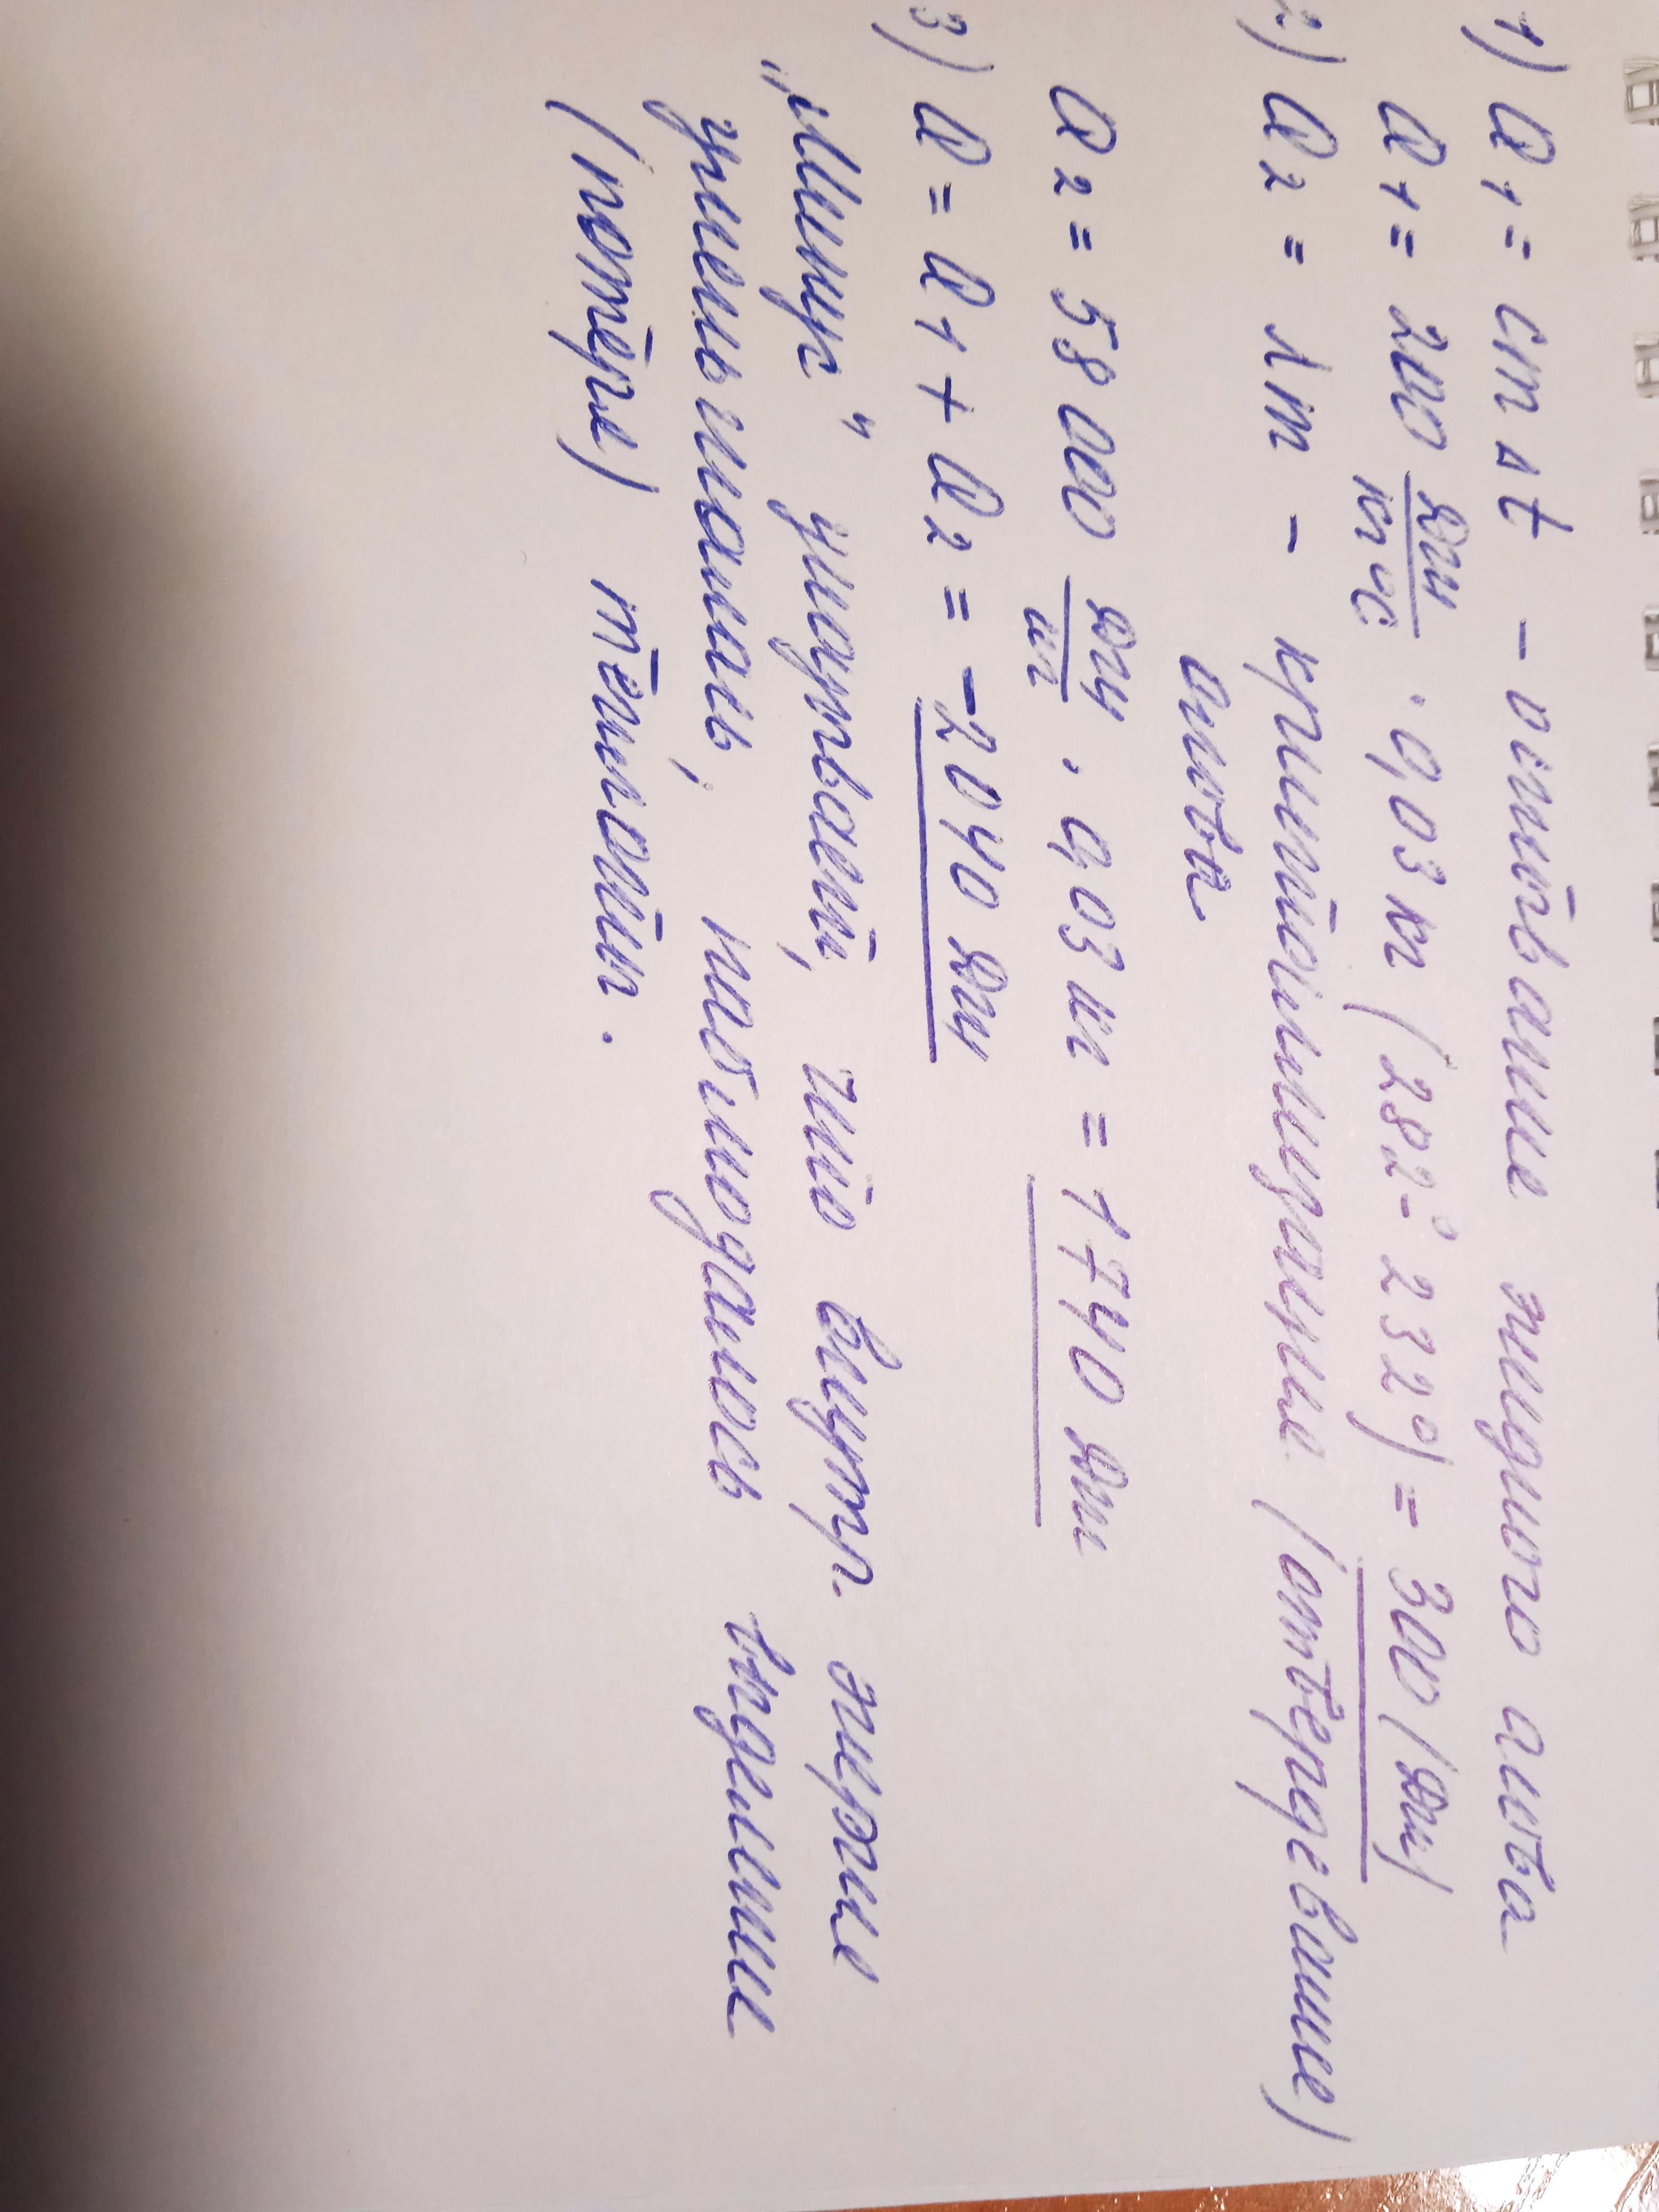 1) Q₁ = cm Δt – остывание жидкого олова
Q₁ = 200 Дж/кг°C · 0,03 кг (282° - 232°) = 300 (Дж)
2) Q₂ = λm – кристаллизация (отвердевание)
олова
Q₂ = 58 000 Дж/кг · 0,03 кг = 1740 Дж
3) Q = Q₁ + Q₂ = -2040 Дж
„Минус" указывает, что внутр. энергия
уменьшилась, наблюдалось выделение
(потеря) теплоты.